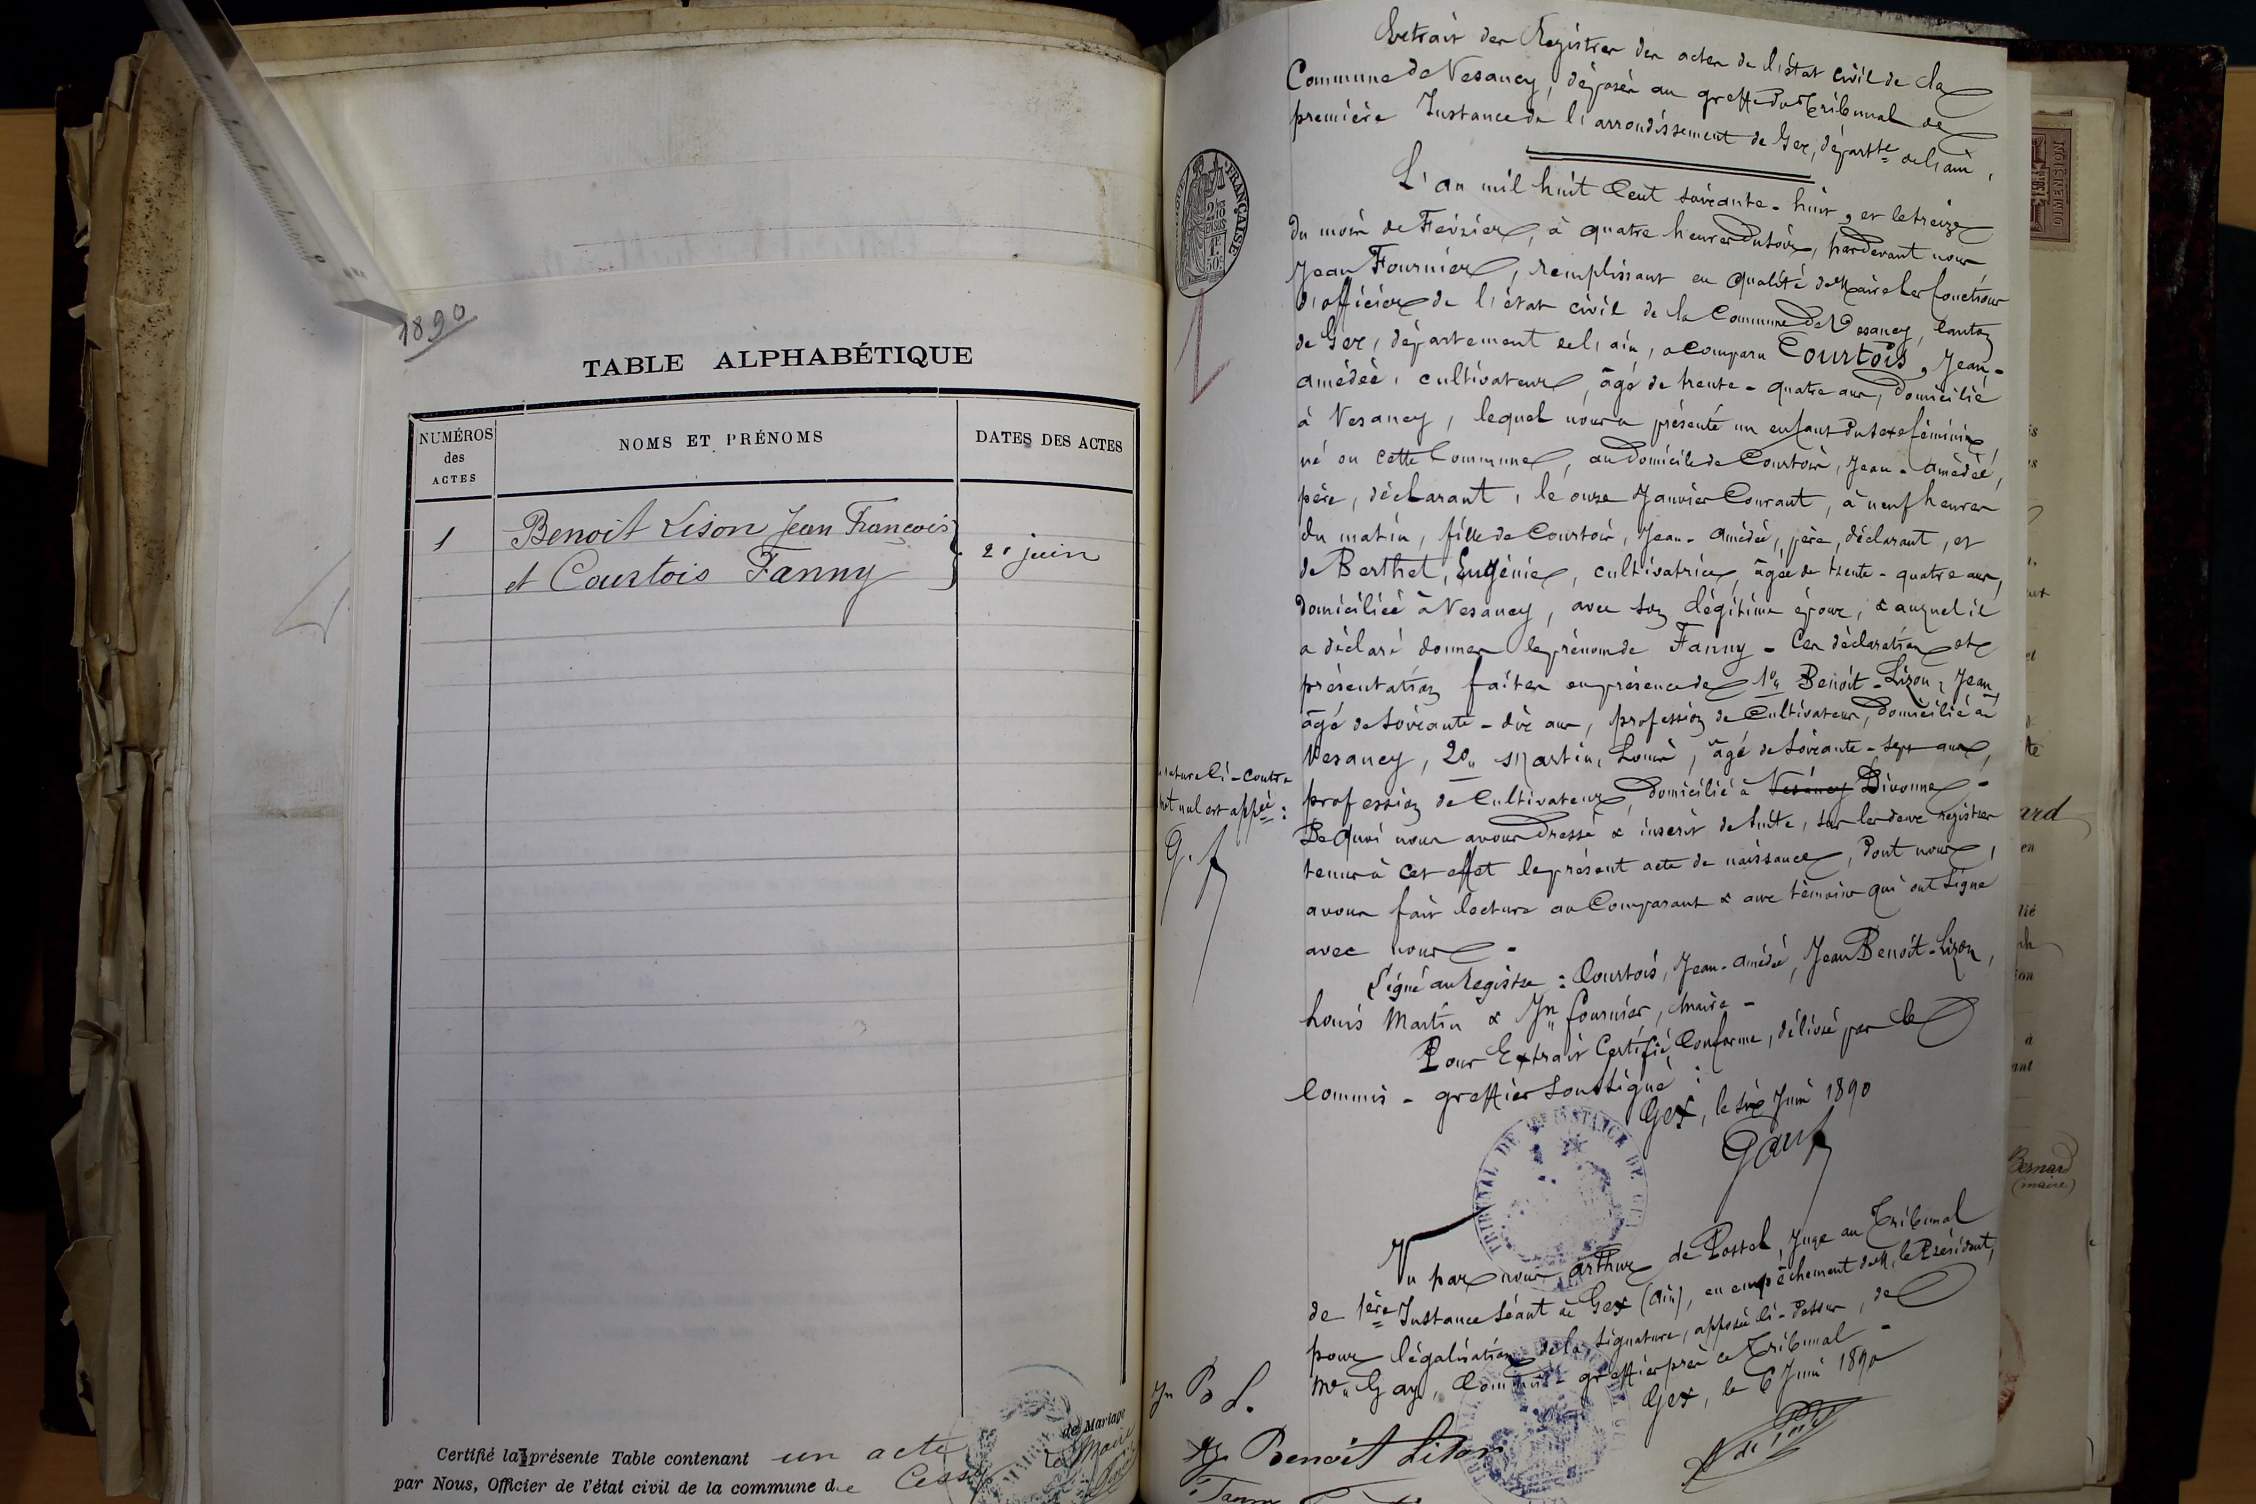 1890
TABLE ALPHABÉTIQUE
NUMÉROS des ACTES
NOMS ET PRÉNOMS
DATES DES ACTES
1
Benoit Lison Jean François
et Courtois Fanny
21 juin
Certifié la présente Table contenant un acte de Mariage
par Nous, Officier de l'état civil de la commune de Cessy Le Maire
Extrait des Registres des actes de l'état civil de la
Commune de Vesancy, déposés au greffe du Tribunal de
première Instance de l'arrondissement de Gex, départte de l'ain.
L'an mil huit Cent soixante-huit, et le treize
du mois de Février, à quatre heures du soir, pardevant nous
Jean Fournier, remplissant en qualité de Maire les fonctions
d'officier de l'état civil de la Commune de Vesancy, Canton
de Gex, département de l'ain, a Comparu Courtois, Jean-
amédée, cultivateur, âgé de trente-quatre ans, domicilié
à Vesancy, lequel nous a présenté un enfant du sexe féminin
né en cette Commune, au domicile de Courtois, Jean-Amédée,
père, déclarant, le onze Janvier Courant, à neuf heures
du matin, fille de Courtois, Jean-Amédée, père, déclarant, et
de Berthet, Eugénie, cultivatrice, âgée de trente-quatre ans,
domiciliée à Vesancy, avec son légitime époux, & auquel il
a déclaré donner le prénom de Fanny - Ces déclaration et
présentation faites en présence de 1o,, Benoit-Lizon, Jean,
âgé de soixante-dix ans, profession de Cultivateur, domicilié à
Vesancy, 2o,, Martin, Louis, âgé de soixante-sept ans,
profession de Cultivateur, domicilié à Vesancy Divonne -
De quoi nous avons dressé & inscrit de suite, sur les deux registres
tenus à cet effet le présent acte de naissance, dont nous,
avons fait lecture au Comparant & aux témoins qui ont signé
avec nous -
Signé au registre : Courtois, Jean-amédée, Jean Benoit-Lizon,
Louis Martin & Jn Fournier, Maire -
Pour Extrait Certifié Conforme, délivré par le
Commis-greffier soussigné :
Gex, le six Juin 1890
Gay
Vu par nous Arthur de Postel, Juge au Tribunal
de 1ère Instance séant à Gex (Ain), en empêchement de M. le Président,
pour légalisation de la signature, apposée ci-dessus, de
Mr Gay, Commis-greffier près ce Tribunal -
Gex, le 6 Juin 1890
Ci-contre
mot nul est appée :
G.
RÉPUBLIQUE FRANÇAISE
2/10 EN SUS
1F 50C
TRIBUNAL DE 1ère INSTANCE DE GEX
Jn B L.
Benoit Lison
DIMENSION
Bernard
(maire)